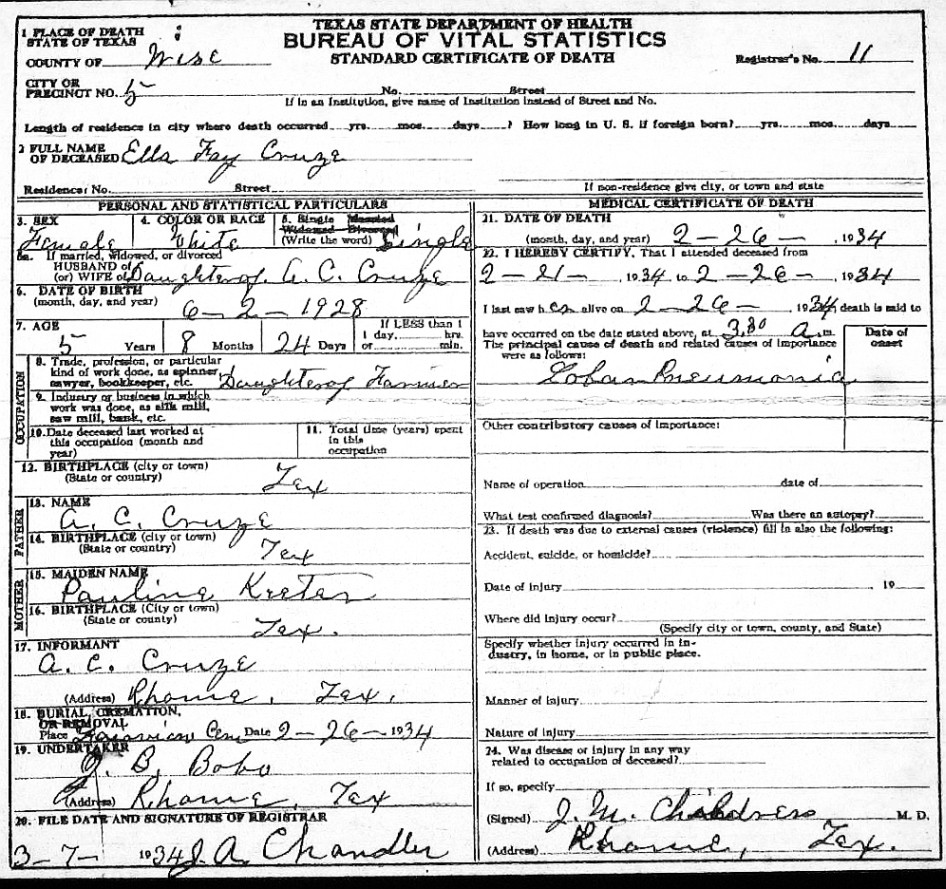 TEXAS STATE DEPARTMENT OF HEALTH
BUREAU OF VITAL STATISTICS
STANDARD CERTIFICATE OF DEATH
1 PLACE OF DEATH
STATE OF TEXAS
COUNTY OF Wise
Registrar's No. 11
CITY OR
PRECINCT NO. 5 No. Street
If in an Institution, give name of Institution instead of Street and No.
Length of residence in city where death occurred yrs. mos. days ? How long in U. S. if foreign born? yrs. mos. days
2 FULL NAME
OF DECEASED Ella Fay Cruze
Residence: No. Street If non-residence give city, or town and state
PERSONAL AND STATISTICAL PARTICULARS
3. SEX 4. COLOR OR RACE 5. Single Married
Widowed Divorced
Female White (Write the word) Single
5a. If married, widowed, or divorced
HUSBAND of
(or) WIFE of Daughter of A. C. Cruze
6. DATE OF BIRTH
(month, day, and year) 6-2-1928
7. AGE If LESS than 1
1 day, hrs.
5 Years 8 Months 24 Days or min.
OCCUPATION
8. Trade, profession, or particular
kind of work done, as spinner
sawyer, bookkeeper, etc. Daughter of Farmer
9. Industry or business in which
work was done, as silk mill,
saw mill, bank, etc.
10. Date deceased last worked at
this occupation (month and
year)
11. Total time (years) spent
in this
occupation
12. BIRTHPLACE (city or town)
(State or country) Tex
FATHER
13. NAME
A. C. Cruze
14. BIRTHPLACE (city or town)
(State or country) Tex
MOTHER
15. MAIDEN NAME
Pauline Keeter
16. BIRTHPLACE (City or town)
(State or county) Tex.
17. INFORMANT
A. C. Cruze
(Address) Rhome, Tex.
18. BURIAL, CREMATION,
OR REMOVAL
Place Cem Date 2-26-1934
19. UNDERTAKER
J. B. Bobo
(Address) Rhome, Tex
20. FILE DATE AND SIGNATURE OF REGISTRAR
3-7- 1934 J. A. Chandler
MEDICAL CERTIFICATE OF DEATH
21. DATE OF DEATH
(month, day, and year) 2-26-, 1934
22. I HEREBY CERTIFY, That I attended deceased from
2-21-, 1934 to 2-26-, 1934
I last saw her alive on 2-26-, 1934, death is said to
have occurred on the date stated above, at 3,30 a.m.
The principal cause of death and related causes of importance
were as follows:
Date of
onset
Lobar Pneumonia
Other contributory causes of importance:
Name of operation date of
What test confirmed diagnosis? Was there an autopsy?
23. If death was due to external causes (violence) fill in also the following:
Accident, suicide, or homicide?
Date of injury 19
Where did injury occur?
(Specify city or town, county, and State)
Specify whether injury occurred in in-
dustry, in home, or in public place.
Manner of injury
Nature of injury
24. Was disease or injury in any way
related to occupation of deceased?
If so, specify
(Signed) J. M. Childress M. D.
(Address) Rhome, Tex.